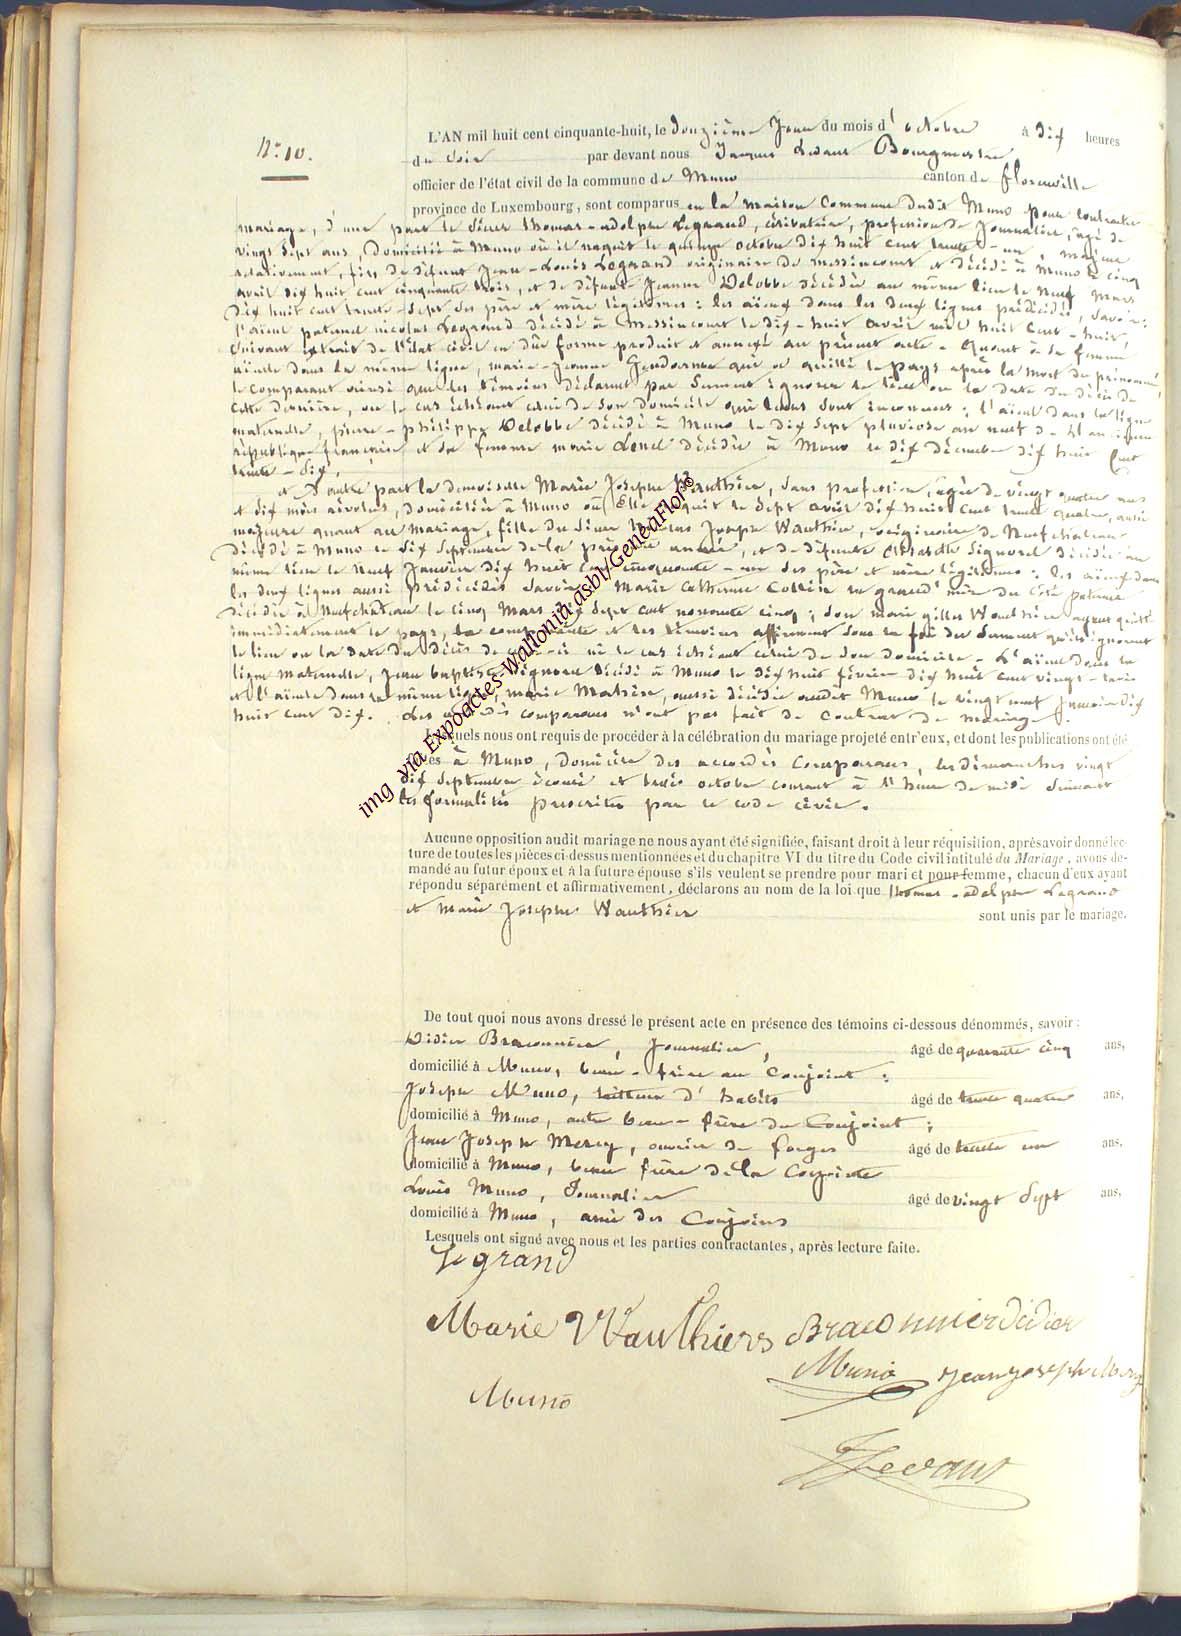 N° 10.
L'AN mil huit cent cinquante-huit, le douzième Jour du mois d'octobre à dix heures
du soir par devant nous Jacques Levant Bourgmestre
officier de l'état civil de la commune de Muno canton de florenville
province de Luxembourg, sont comparus en la maison Commune dudit Muno pour contracter
mariage, d'une part le Sieur thomas-adolphe Legrand, célibataire, profession de Journalier, âgé de
vingt sept ans, Domicilié à Muno où il naquit le quinze octobre dix huit cent trente-un, majeur
relativement, fils de défunt Jean-Louis Legrand originaire de messincourt et décédé à Muno le cinq
avril dix huit cent cinquante trois, et de défunte Jeanne Delobbe décédée au même lieu le neuf mars
dix huit cent trente-sept des père et mère légitimes : les aïeux dans les deux lignes prédécédés, Savoir :
l'aïeul paternel nicolas Legrand décédé à Messincourt le dix-huit avril mil huit cent-huit,
suivant extrait de l'état civil en due forme produit et annexé au présent acte - Quant à sa femme
aïeule dans la même ligne, marie-Jeanne Gendarme qui a quitté le pays après la mort du prénommé
le comparant ainsi que les témoins déclarent par Serment ignorer le lieu ou la date du décès de
cette dernière, ou le cas échéant celui de son domicile qui leurs sont inconnus ; l'aïeul dans la ligne
maternelle, pierre-philippe Delobbe décédé à Muno le dix sept pluviose an neuf de
république française et sa femme marie Lonel décédée à Muno le dix décembre dix huit cent
trente-dix.
et D'autre part la demoiselle Marie Josephe Wauthier, sans profession, âgée de vingt quatre ans
et dix mois révolus, domiciliée à Muno où Elle naquit le sept avril dix huit cent trente quatre, aussi
majeure quant au mariage, fille du Sieur Joseph Wauthier, originaire de Neufchateau
décédé à Muno le dix Septembre de la présente année, et de défunte Signorel décédée au
même lieu le neuf Janvier dix huit cent cinquante-un des père et mère légitimes : les aïeux dans
les deux lignes aussi prédécédés Savoir : Marie Catherine Collin sa grand'mère du côté paternel
décédée à Neufchateau le cinq Mars dix sept cent nonante cinq ; son mari gilles Wauthier ayant quitté
immédiatement le pays, la comparante et les témoins affirment sous la foi du Serment qu'ils ignorent
le lieu ou la date du décès de celui-ci ni le cas échéant celui de son domicile - L'aïeul dans la
ligne maternelle, Jean baptiste Signorel décédé à Muno le dix huit février dix huit cent vingt-trois
et l'aïeule dans la même ligne, marie Mathieu, aussi décédée audit Muno le vingt neuf Janvier dix
huit cent dix. Les accordés comparans n'ont pas fait de Contrat de mariage.
Lesquels nous ont requis de procéder à la célébration du mariage projeté entr'eux, et dont les publications ont été
à Muno, domicile des accordés Comparans, les dimanches vingt
six Septembre écoulé et trois octobre courant à l'heure de midi Suivant
les formalités prescrites par le code civil.
Aucune opposition audit mariage ne nous ayant été signifiée, faisant droit à leur réquisition, après avoir donné lec-
ture de toutes les pièces ci-dessus mentionnées et du chapitre VI du titre du Code civil intitulé du Mariage, avons de-
mandé au futur époux et à la future épouse s'ils veulent se prendre pour mari et pour femme, chacun d'eux ayant
répondu séparément et affirmativement, déclarons au nom de la loi que thomas-adolphe Legrand
et Marie Josephe Wauthier sont unis par le mariage.
De tout quoi nous avons dressé le présent acte en présence des témoins ci-dessous dénommés, savoir :
Didier Braconnier, Journalier, âgé de quarante cinq ans,
domicilié à Muno, beau-frère au Conjoint ;
Joseph Muno, tailleur d'habits âgé de trente quatre ans,
domicilié à Muno, autre beau-frère du Conjoint ;
Jean Joseph Mercy, ouvrier de forges âgé de trente un ans,
domicilié à Muno, beau frère de la Conjointe
Louis Muno, Journalier âgé de vingt Sept ans,
domicilié à Muno, ami des Conjoins
Lesquels ont signé avec nous et les parties contractantes, après lecture faite.
Legrand
Marie Wauthiers Braconnier didier
Muno Jean Joseph Mercy
Muno
Levant
img via Expoactes-Wallonia asbl/GeneaFlor©